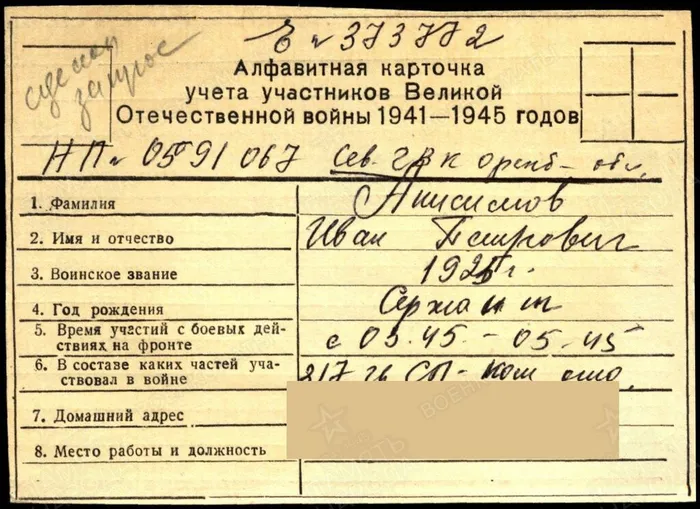 сделан
запрос
Е № 373772
Алфавитная карточка
учета участников Великой
Отечественной войны 1941—1945 годов
НП № 0591067 Сев. ГВК оренб- обл.
1. Фамилия Анисимов
2. Имя и отчество Иван Петрович
3. Воинское звание 1925г.
4. Год рождения Сержант
5. Время участий с боевых дей-
ствиях на фронте с 03.45.-05.45
6. В составе каких частей уча-
ствовал в войне 217 гв СП- ком отд.
7. Домашний адрес
8. Место работы и должность